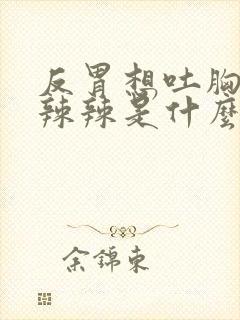 反胃想吐胸
辣辣是什麼
余錦東